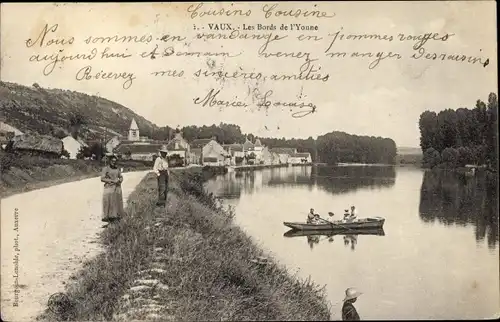 Cousins Cousine
1. - VAUX. - Les Bords de l'Yonne
Nous sommes en vandange en pommes rouges
aujourd'hui et demain venez manger des raisins
Recevez mes sincères, amitiés
Marie Louise
Bourgeois-Lenoble, phot., Auxerre